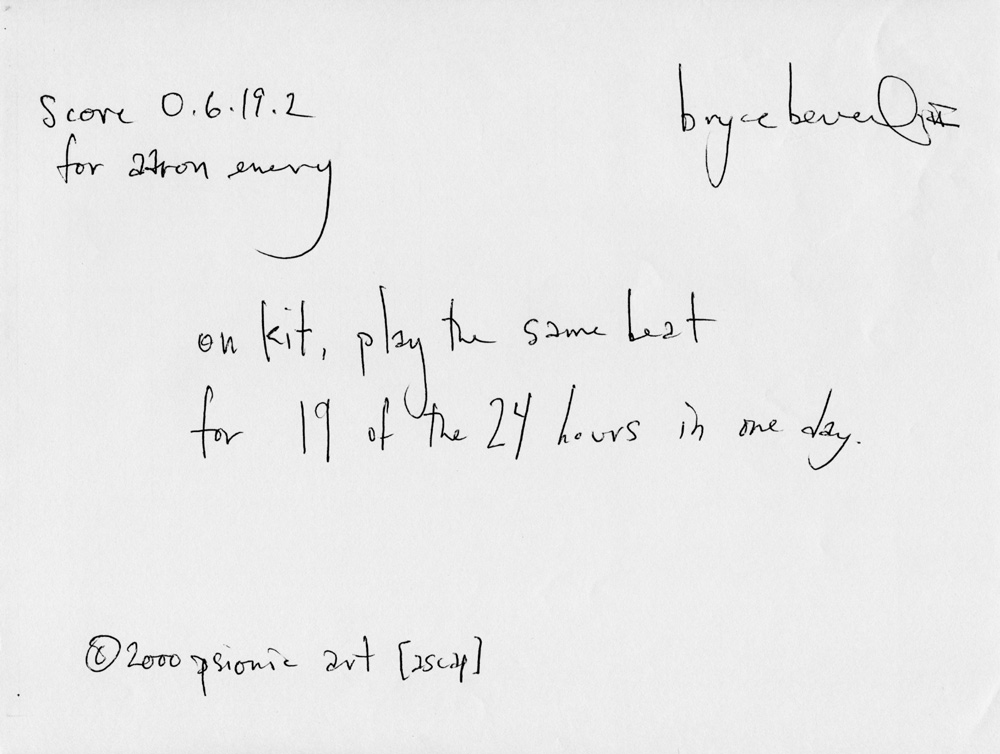 score 0.6.19.2
for atron enemy
bryce beverlin II
on kit, play the same beat
for 19 of the 24 hours in one day.
©2000 psionic art [ascap]